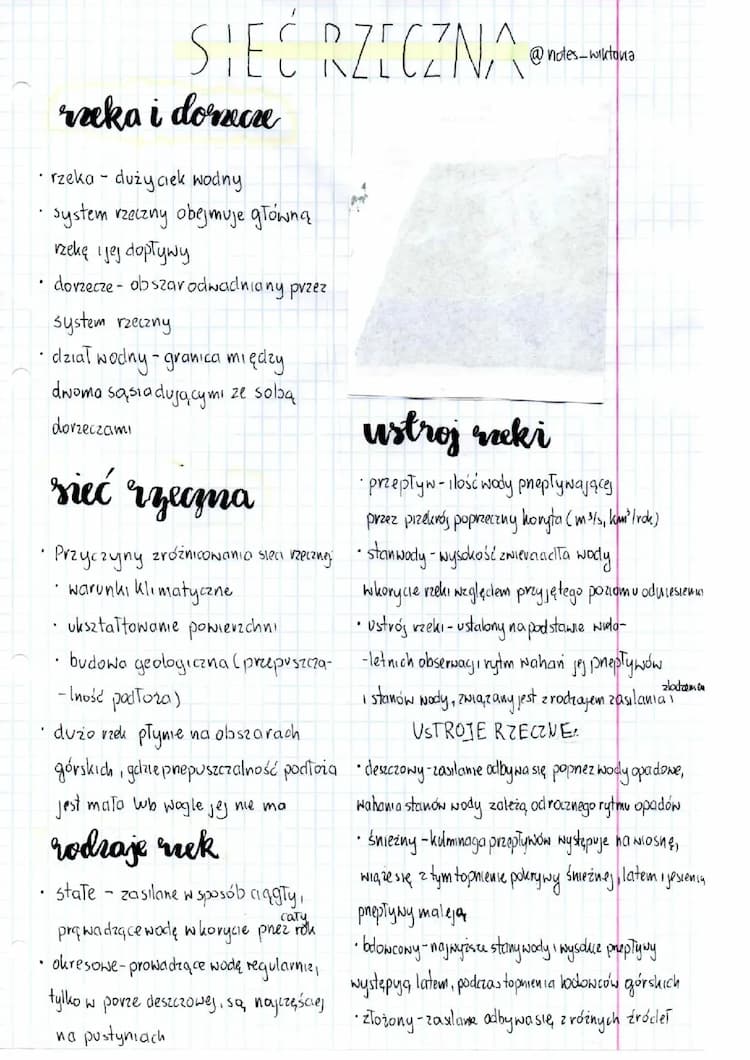 SIEĆ RZECZNA @notes_wiktoria
rzeka i dorzecze
· rzeka - duży ciek wodny
· system rzeczny obejmuje główną
rzekę i jej dopływy
· dorzecze - obszar odwadniany przez
system rzeczny
· dział wodny - granica między
dwoma sąsiadującymi ze sobą
dorzeczami
sieć rzeczna
· Przyczyny zróżnicowania sieci rzecznej
· warunki klimatyczne
· ukształtowanie powierzchni
· budowa geologiczna (przepuszcza-
-lność podłoża)
· dużo rzek płynie na obszarach
górskich, gdzie przepuszczalność podłoża
jest mała lub wogle jej nie ma
rodzaje rzek
· stałe - zasilane w sposób ciągły,
prowadzące wodę w korycie przez cały rok
· okresowe - prowadzące wodę regularnie,
tylko w porze deszczowej, są najczęściej
na pustyniach
ustroj rzeki
· przepływ - ilość wody przepływającej
przez przekrój poprzeczny koryta (m³/s, km³/rok)
· stan wody - wysokość zwierciadła wody
w korycie rzeki względem przyjętego poziomu odniesienia
· ustrój rzeki - ustalony na podstawie wielo-
-letnich obserwacji rytm wahań jej przepływów
i stanów wody, związany jest z rodzajem zasilania i zlodzenia
USTROJE RZECZNE:
· deszczowy - zasilanie odbywa się poprzez wody opadowe,
wahania stanów wody zależą od rocznego rytmu opadów
· śnieżny - kulminacja przepływów występuje na wiosnę,
wiąże się z tym topnienie pokrywy śnieżnej, latem i jesienią
przepływy maleją
· lodowcowy - najwyższe stany wody i wysokie przepływy
występują latem, podczas topnienia lodowców górskich
· złożony - zasilanie odbywa się z różnych źródeł